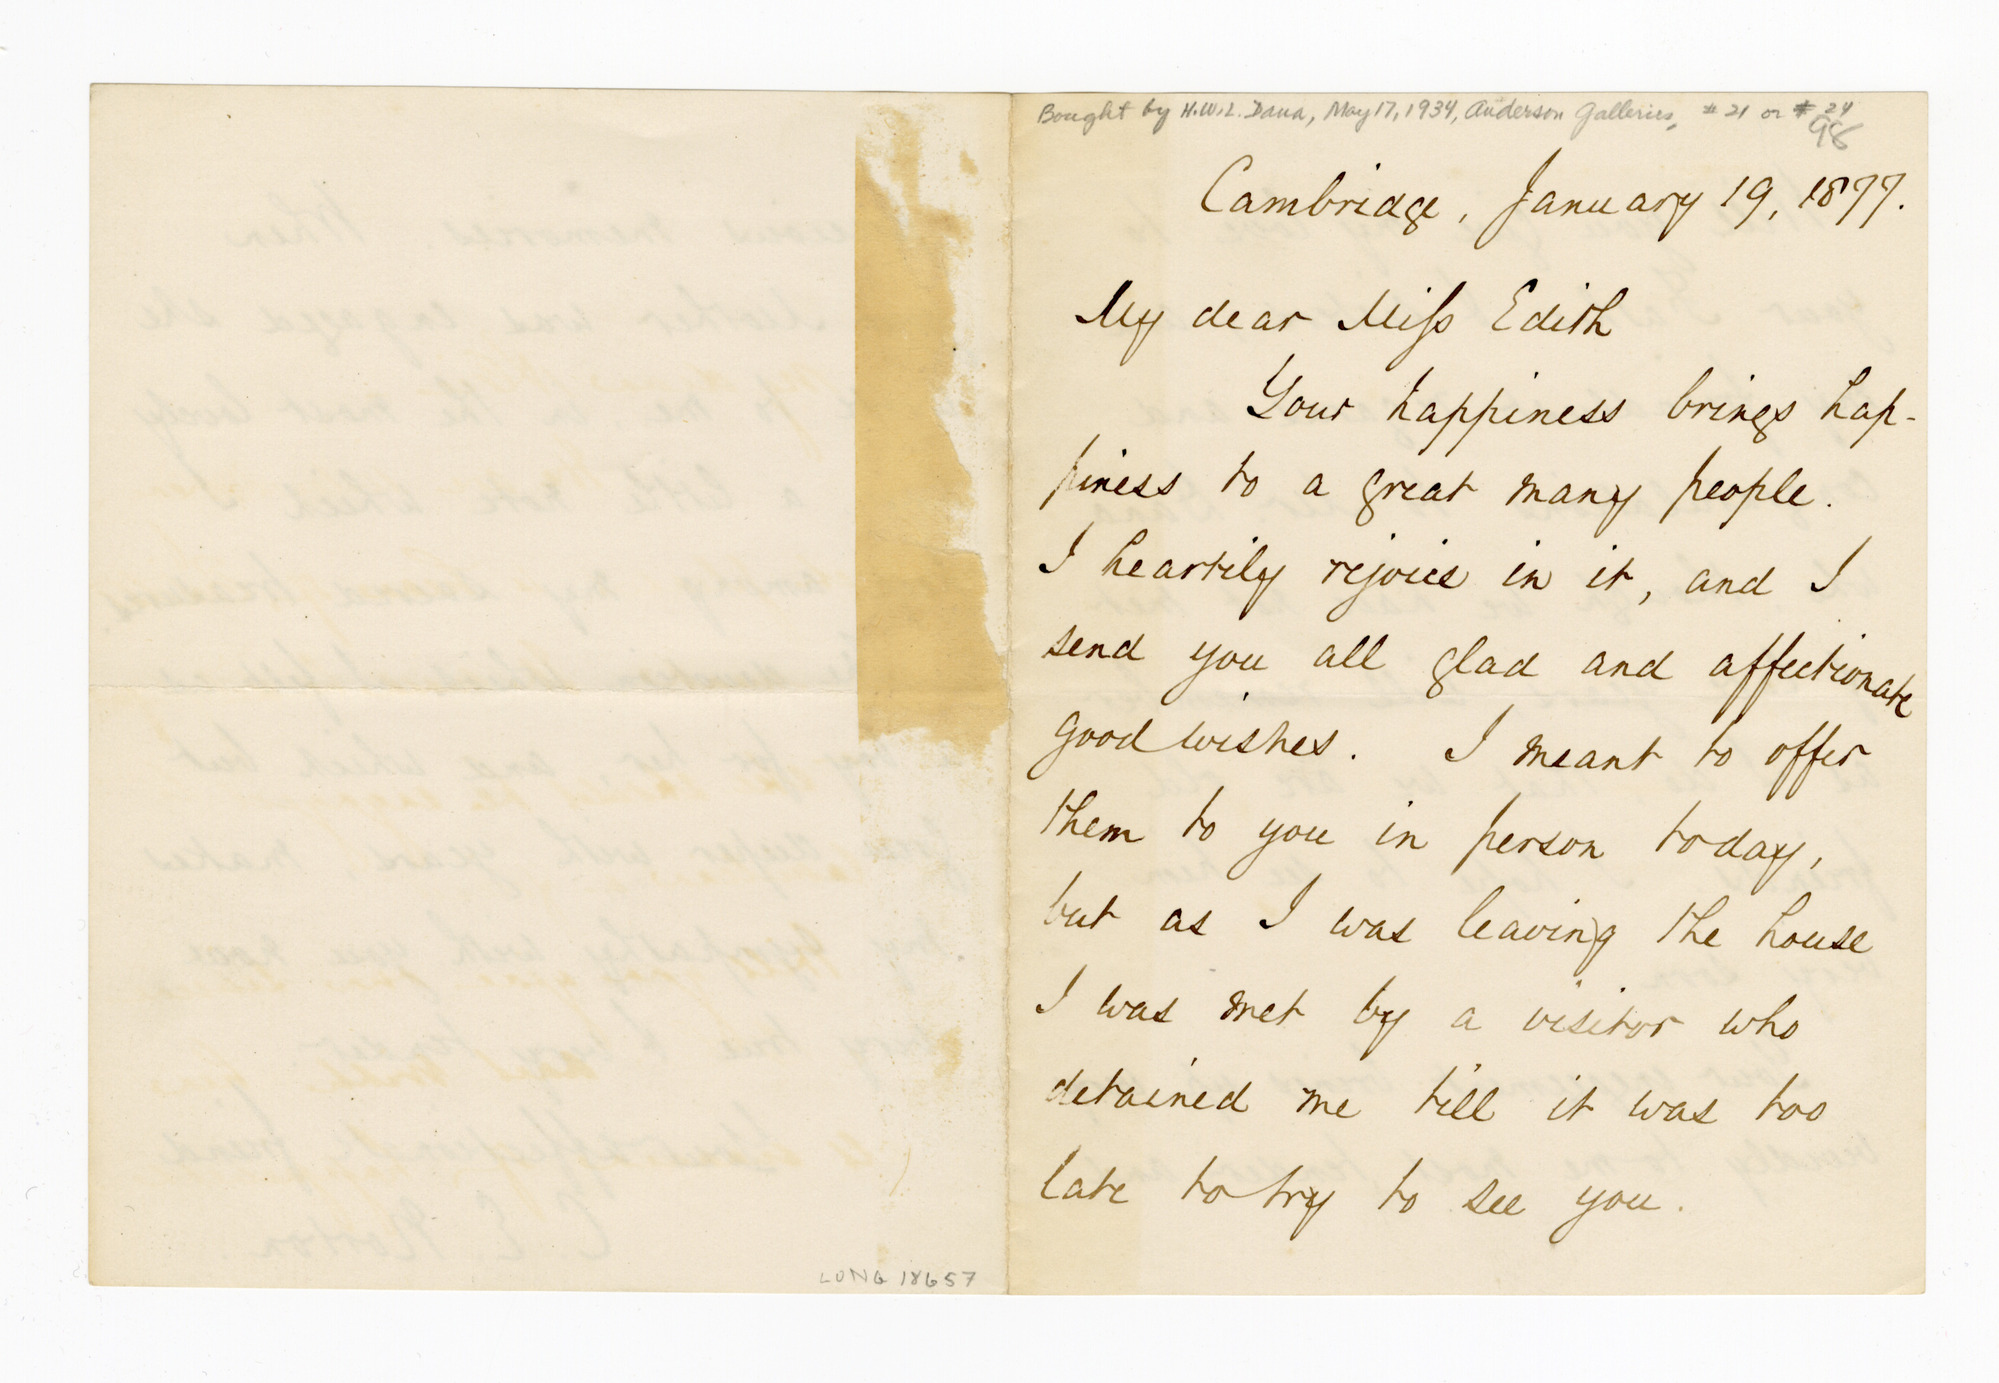 Bought by H.W.L. Dana, May 17, 1934, Anderson Galleries, # 21 or # 24
98
Cambridge, January 19, 1877.
My dear Miſs Edith
Your happiness brings hap-
piness to a great many people.
I heartily rejoice in it, and I
send you all glad and affectionate
good wishes. I meant to offer
them to you in person today,
but as I was leaving the house
I was met by a visitor who
detained me till it was too
late to try to see you.
LONG 18657